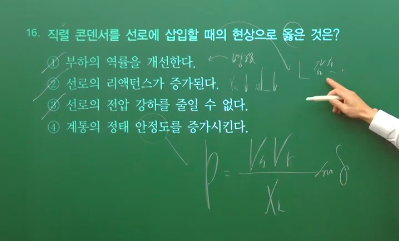 16. 직렬 콘덴서를 선로에 삽입할 때의 현상으로 옳은 것은?
① 부하의 역률을 개선한다.
② 선로의 리액턴스가 증가된다.
③ 선로의 전압 강하를 줄일 수 없다.
④ 계통의 정태 안정도를 증가시킨다.
P = VsVr / XL sin δ